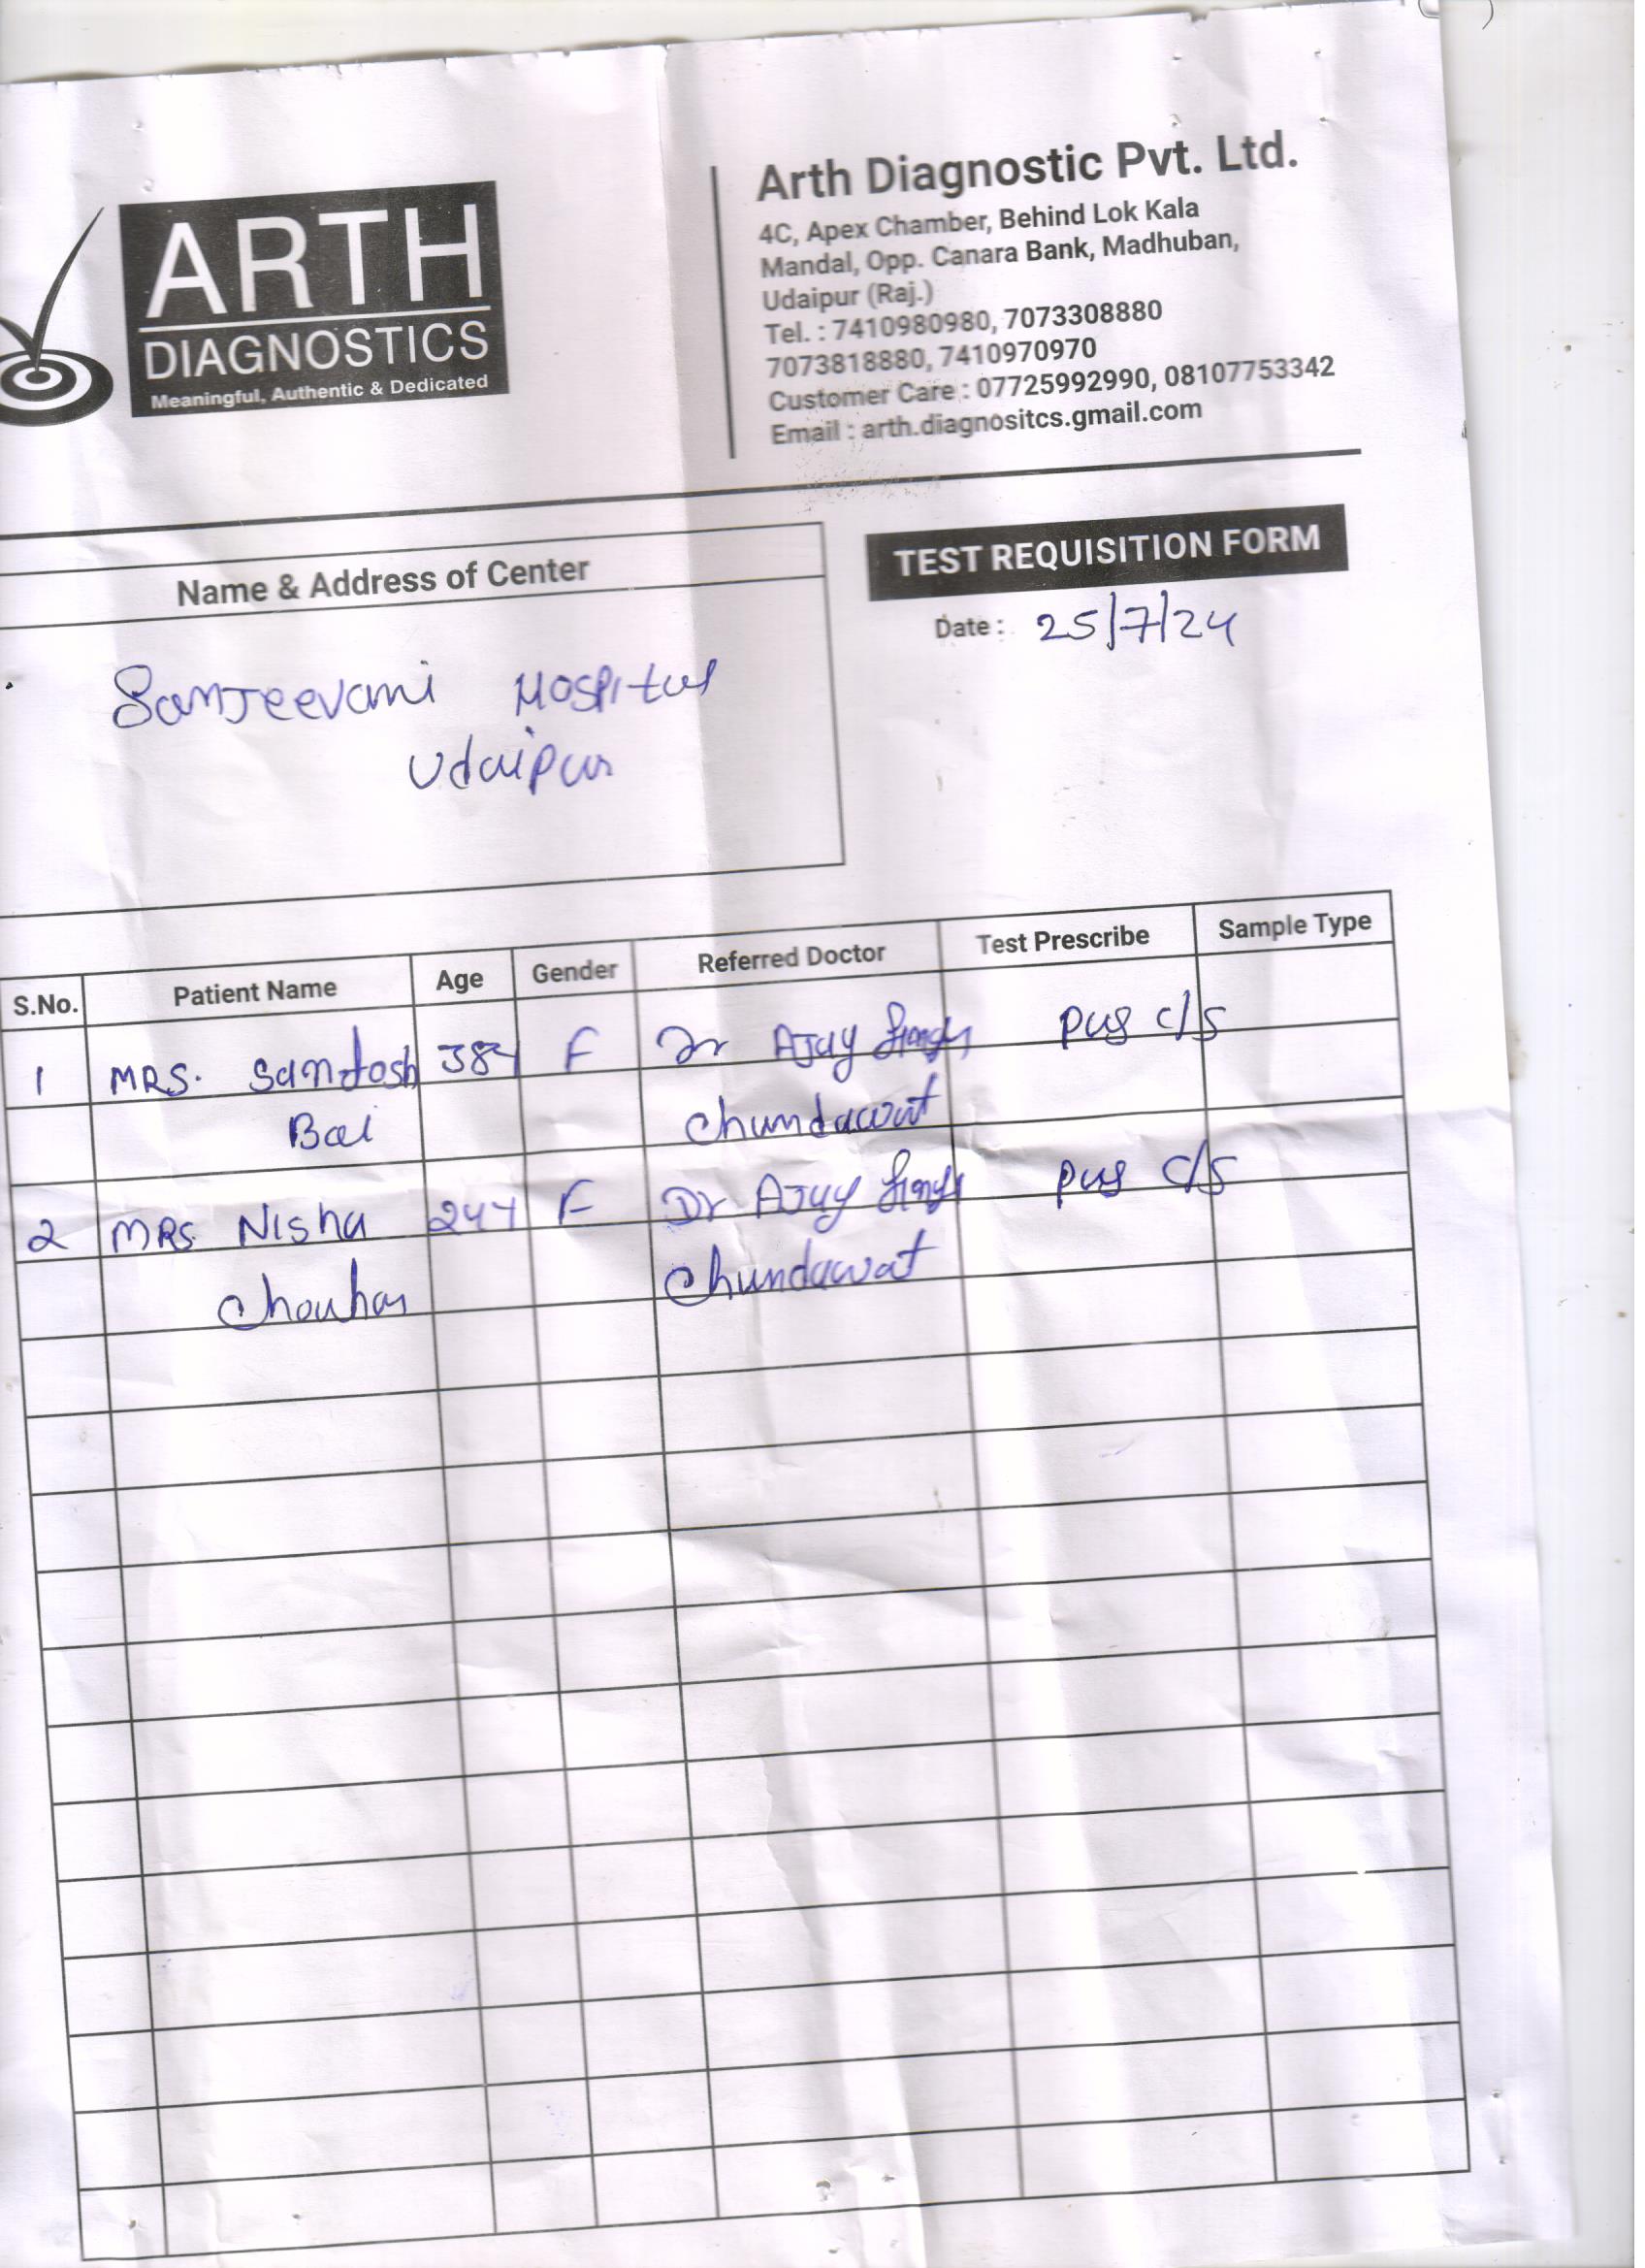 ARTH
DIAGNOSTICS
Meaningful, Authentic & Dedicated
Arth Diagnostic Pvt. Ltd.
4C, Apex Chamber, Behind Lok Kala
Mandal, Opp. Canara Bank, Madhuban,
Udaipur (Raj.)
Tel. : 7410980980, 7073308880
7073818880, 7410970970
Customer Care : 07725992990, 08107753342
Email : arth.diagnositcs.gmail.com
Name & Address of Center
TEST REQUISITION FORM
Date : 25/7/24
Sanjeevani Hospital
Udaipur
S.No. Patient Name Age Gender Referred Doctor Test Prescribe Sample Type
1 MRS. Santosh 38Y F Dr Ajay Singh pus c/s
Bai Chundawat
2 MRS. Nisha 24Y F Dr Ajay Singh pus c/s
Chouhan Chundawat